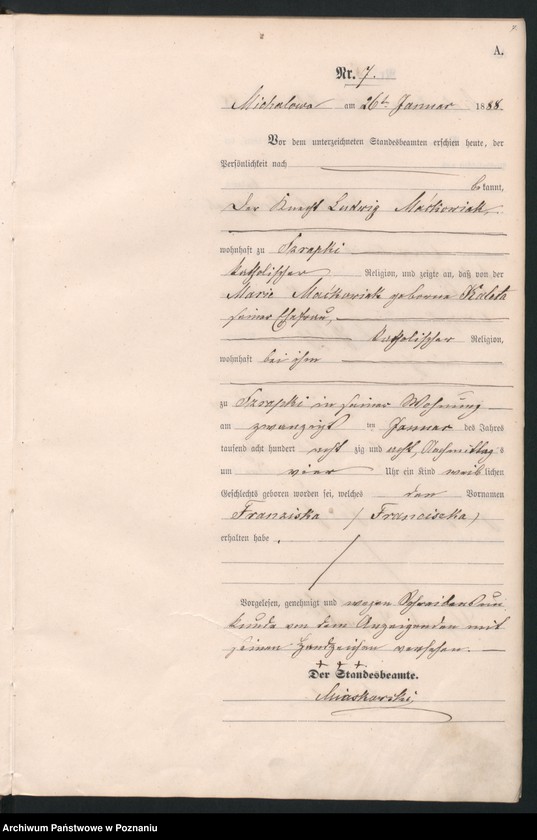 7.
A.
Nr. 7.
Michalowo am 26ten Januar 1888
Vor dem unterzeichneten Standesbeamten erschien heute, der
Persönlichkeit nach
bekannt,
Der Knecht Ludwig Maćkowiak,
wohnhaft zu Szrapki
katholischer Religion, und zeigte an, daß von der
Marie Maćkowiak geborne Kaleta
seiner Ehefrau,
katholischer Religion,
wohnhaft bei ihm
zu Szrapki in seiner Wohnung
am zwanzigsten Januar des Jahres
tausend acht hundert achtzig und acht, Nachmittags
um vier Uhr ein Kind weiblichen
Geschlechts geboren worden sei, welches den Vornamen
Franziska (Franciszka)
erhalten habe.
Vorgelesen, genehmigt und wegen Schreibensun-
kunde von dem Anzeigenden mit
seinen Handzeichen versehen.
+ + +
Der Standesbeamte.
Miaskowski
Archiwum Państwowe w Poznaniu